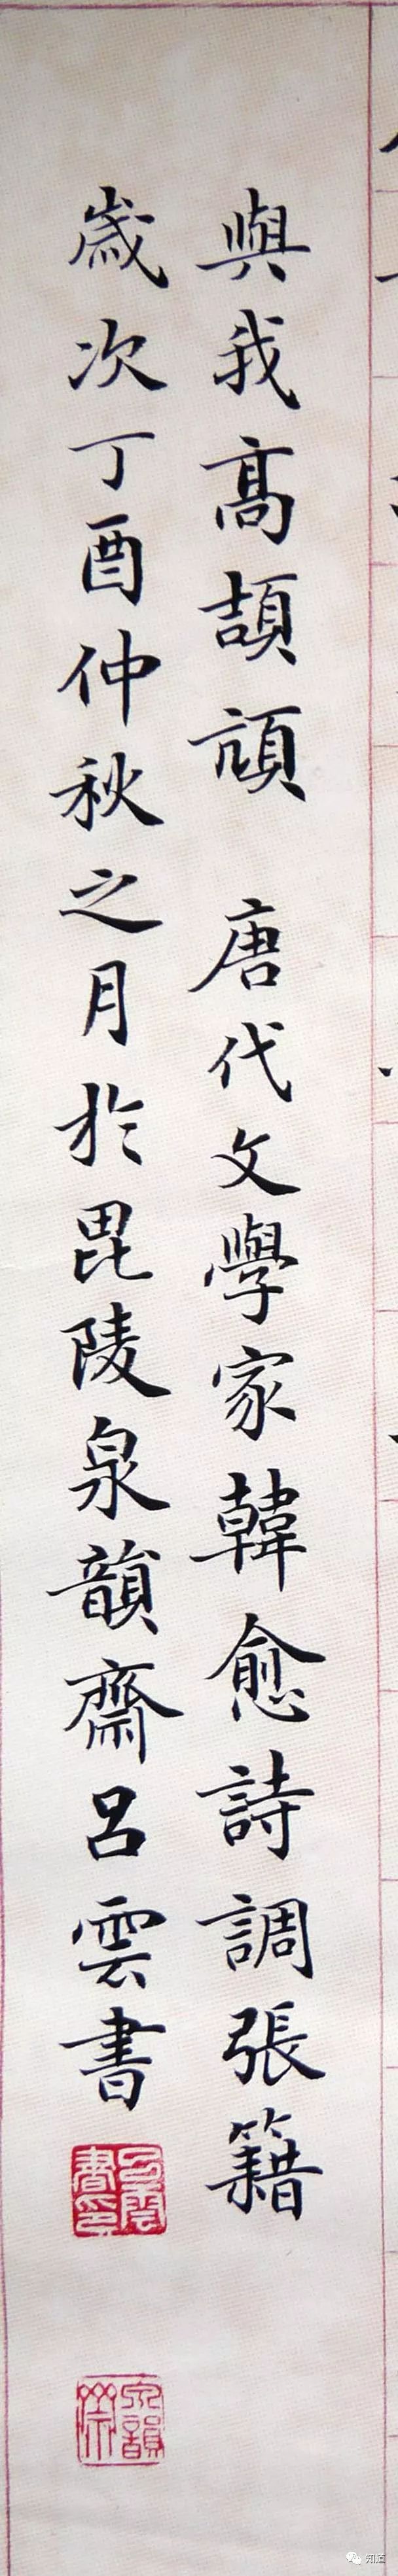 與我高頡頏 唐代文學家韓愈詩調張籍
歲次丁酉仲秋之月於毘陵泉韻齋呂雲書
呂雲書印
泉韻齋
知道